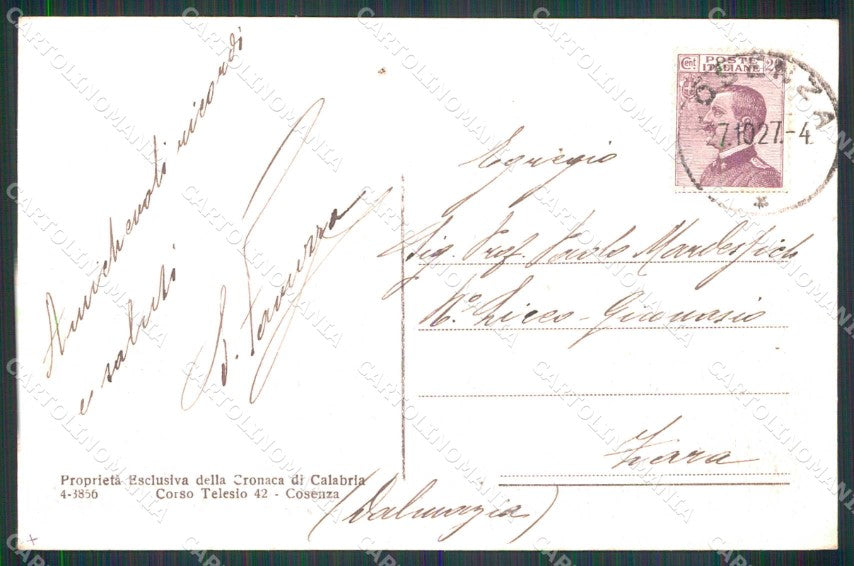 Amichevoli ricordi
e saluti
Proprietà Esclusiva della Cronaca di Calabria
4-3856 Corso Telesio 42 - Cosenza
Cent POSTE 20
ITALIANE
COSENZA
7.10 27.-4
Egregio
Sig. Prof. Paolo
R.° Liceo-Ginnasio
Zara
(Dalmazia)
CARTOLINOMANIA